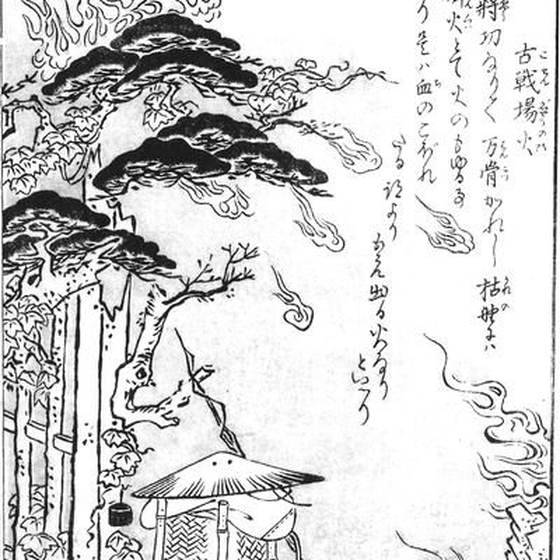 古戦場火
将功なりて 万骨かれし 枯野には
火とて火のもゆる事
り是は血のこぼれ
たる跡より
もえ出る火なり
といへり